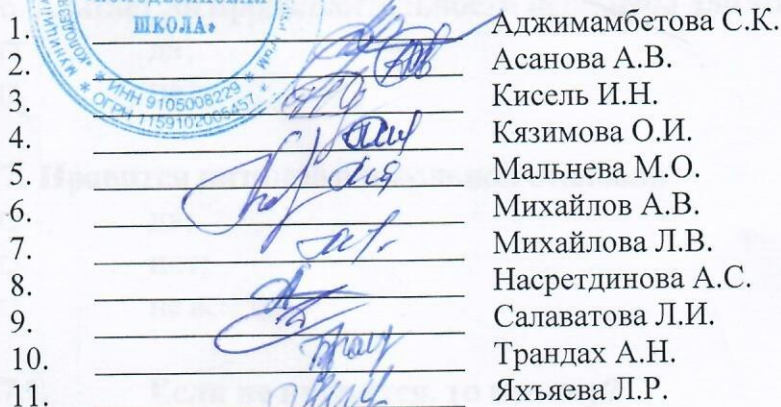 ШКОЛА»
ИНН 9105008229 *
* ОГРН
1. Аджимамбетова С.К.
2. Асанова А.В.
3. Кисель И.Н.
4. Кязимова О.И.
5. Мальнева М.О.
6. Михайлов А.В.
7. Михайлова Л.В.
8. Насретдинова А.С.
9. Салаватова Л.И.
10. Трандах А.Н.
11. Яхъяева Л.Р.